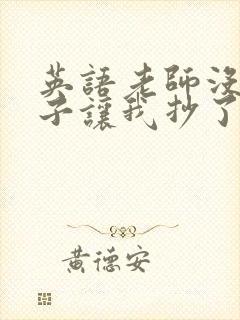 英語老師沒
子讓我抄了
黃德安